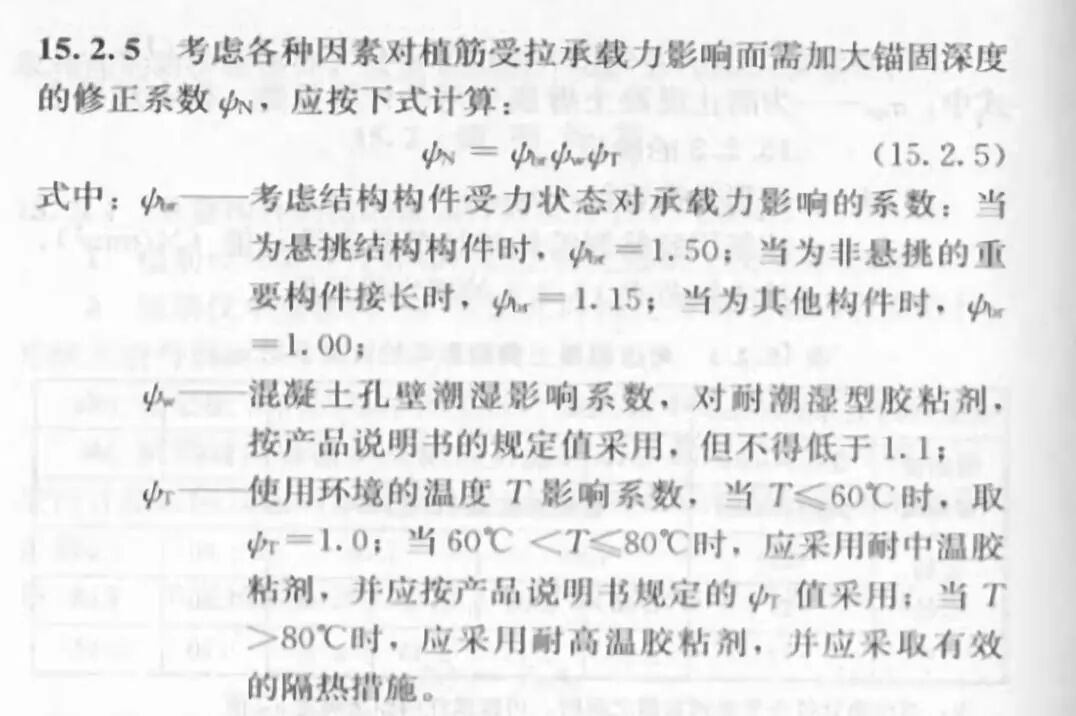 15.2.5 考虑各种因素对植筋受拉承载力影响而需加大锚固深度
的修正系数 ψN，应按下式计算：
ψN = ψbrψwψT (15.2.5)
式中：ψbr——考虑结构构件受力状态对承载力影响的系数：当
为悬挑结构构件时，ψbr=1.50；当为非悬挑的重
要构件接长时，ψbr=1.15；当为其他构件时，ψbr
=1.00；
ψw——混凝土孔壁潮湿影响系数，对耐潮湿型胶粘剂，
按产品说明书的规定值采用，但不得低于1.1；
ψT——使用环境的温度 T 影响系数，当 T≤60℃时，取
ψT=1.0；当 60℃ <T≤80℃时，应采用耐中温胶
粘剂，并应按产品说明书规定的 ψT 值采用；当 T
>80℃时，应采用耐高温胶粘剂，并应采取有效
的隔热措施。